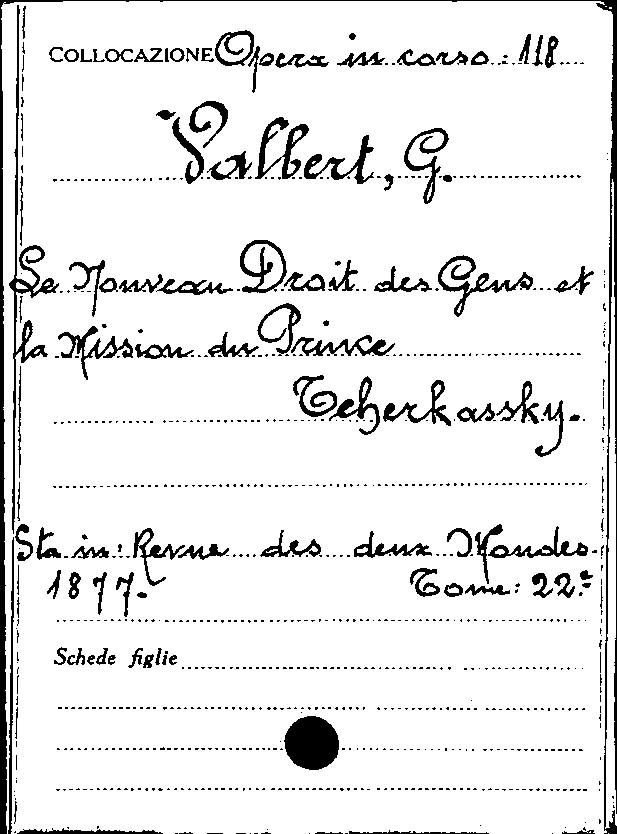 COLLOCAZIONE Opera in corso: 118
Valbert, G.
Le Nouveau Droit des Gens et
la Mission du Prince
Tcherkassky.
Sta in: Revue des deux Mondes.
1877. Tome: 22.e
Schede figlie